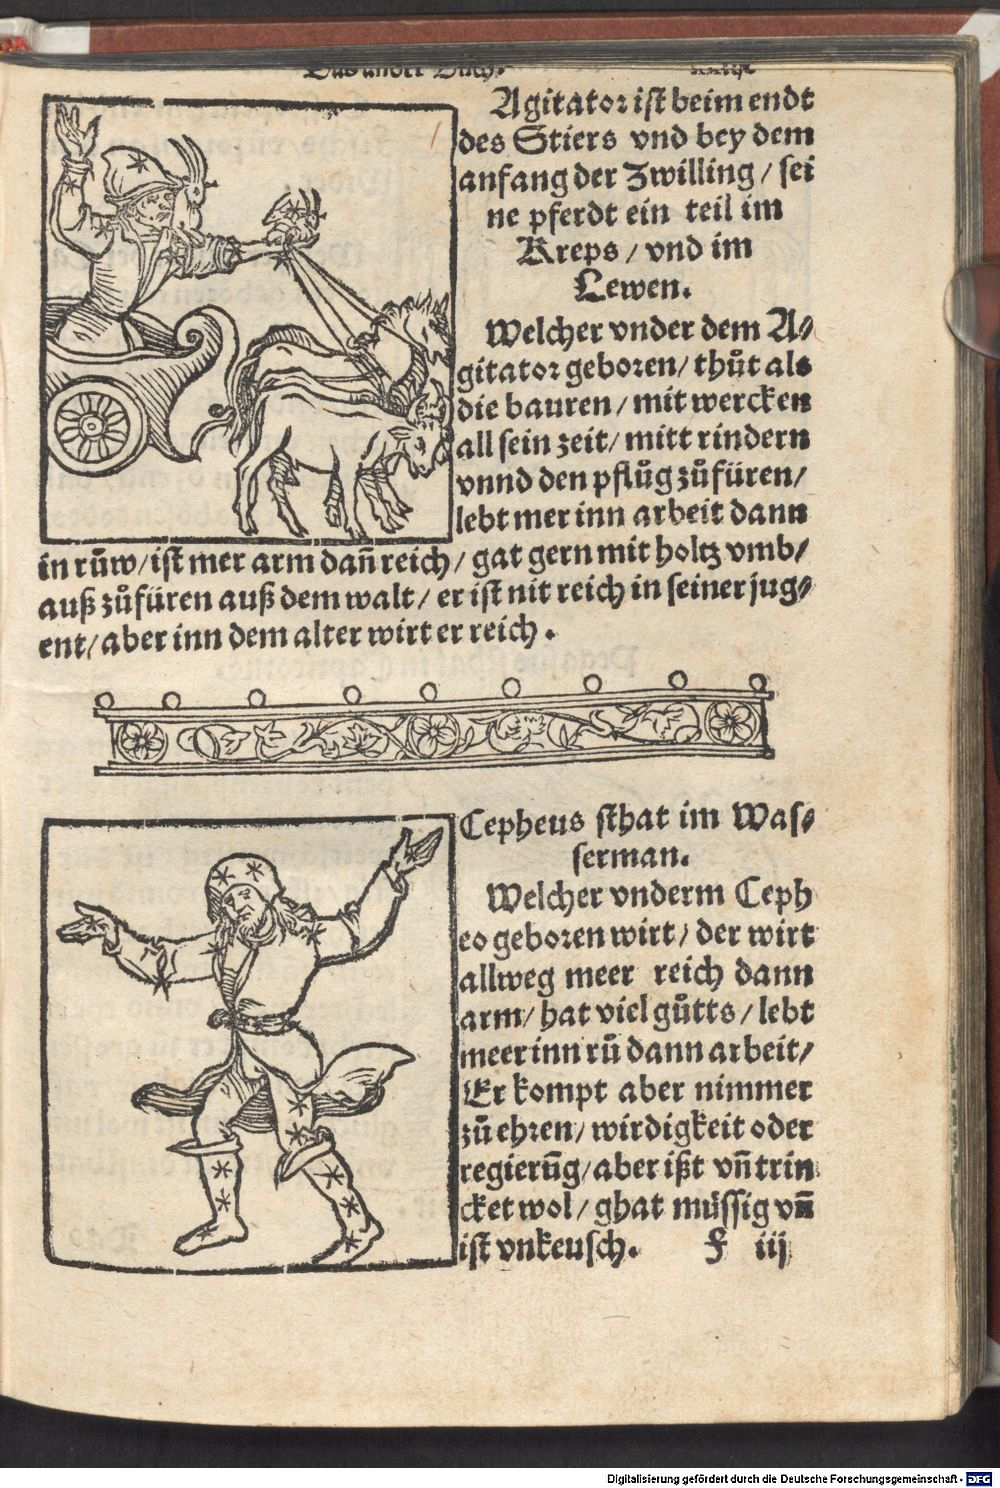 Agitator ist beim endt
des Stiers vnd bey dem
anfang der Zwilling / sei
ne pferdt ein teil im
Kreps / vnd im
Lewen.
Welcher vnder dem A⸗
gitator geboren / thůt als
die bauren / mit wercken
all sein zeit / mitt rindern
vnnd den pflůg zůfüren /
lebt mer inn arbeit dann
in rūw / ist mer arm dañ reich / gat gern mit holtz vmb /
auß zůfüren auß dem walt / er ist nit reich in seiner jug⸗
ent / aber inn dem alter wirt er reich .
Cepheus sthat im Was⸗
serman.
Welcher vnderm Ceph
eo geboren wirt / der wirt
allweg meer reich dann
arm / hat viel gůtts / lebt
meer inn rū dann arbeit /
Er kompt aber nimmer
zū ehren / wirdigkeit oder
regierūg / aber ißt vñ trin
cket wol / ghat müssig vñ
ist vnkeusch. F iij
Digitalisierung gefördert durch die Deutsche Forschungsgemeinschaft - DFG